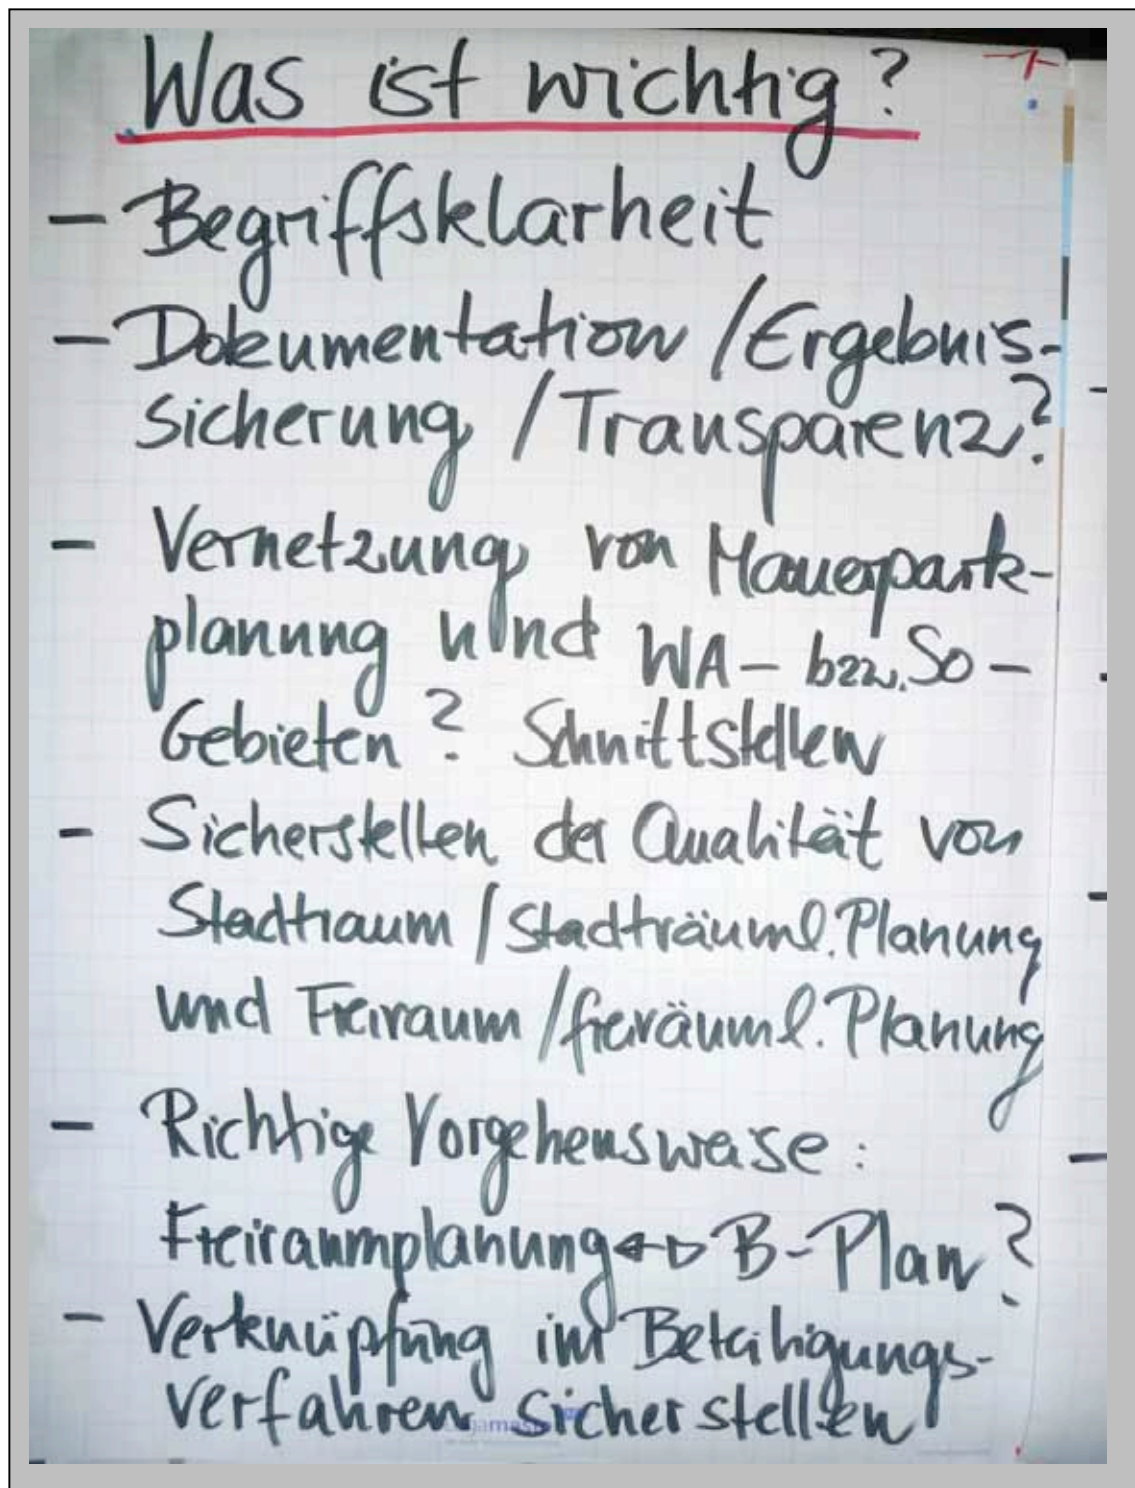 Was ist wichtig?
- Begriffsklarheit
- Dokumentation / Ergebnis-
sicherung / Transparenz?
- Vernetzung von Mauerpark-
planung und WA- bzw. So-
Gebieten? Schnittstellen
- Sicherstellen der Qualität von
Stadtraum / Stadträuml. Planung
und Freiraum / freiräuml. Planung
- Richtige Vorgehensweise:
Freiraumplanung ↔ B-Plan?
- Verknüpfung im Beteiligungs-
verfahren sicherstellen